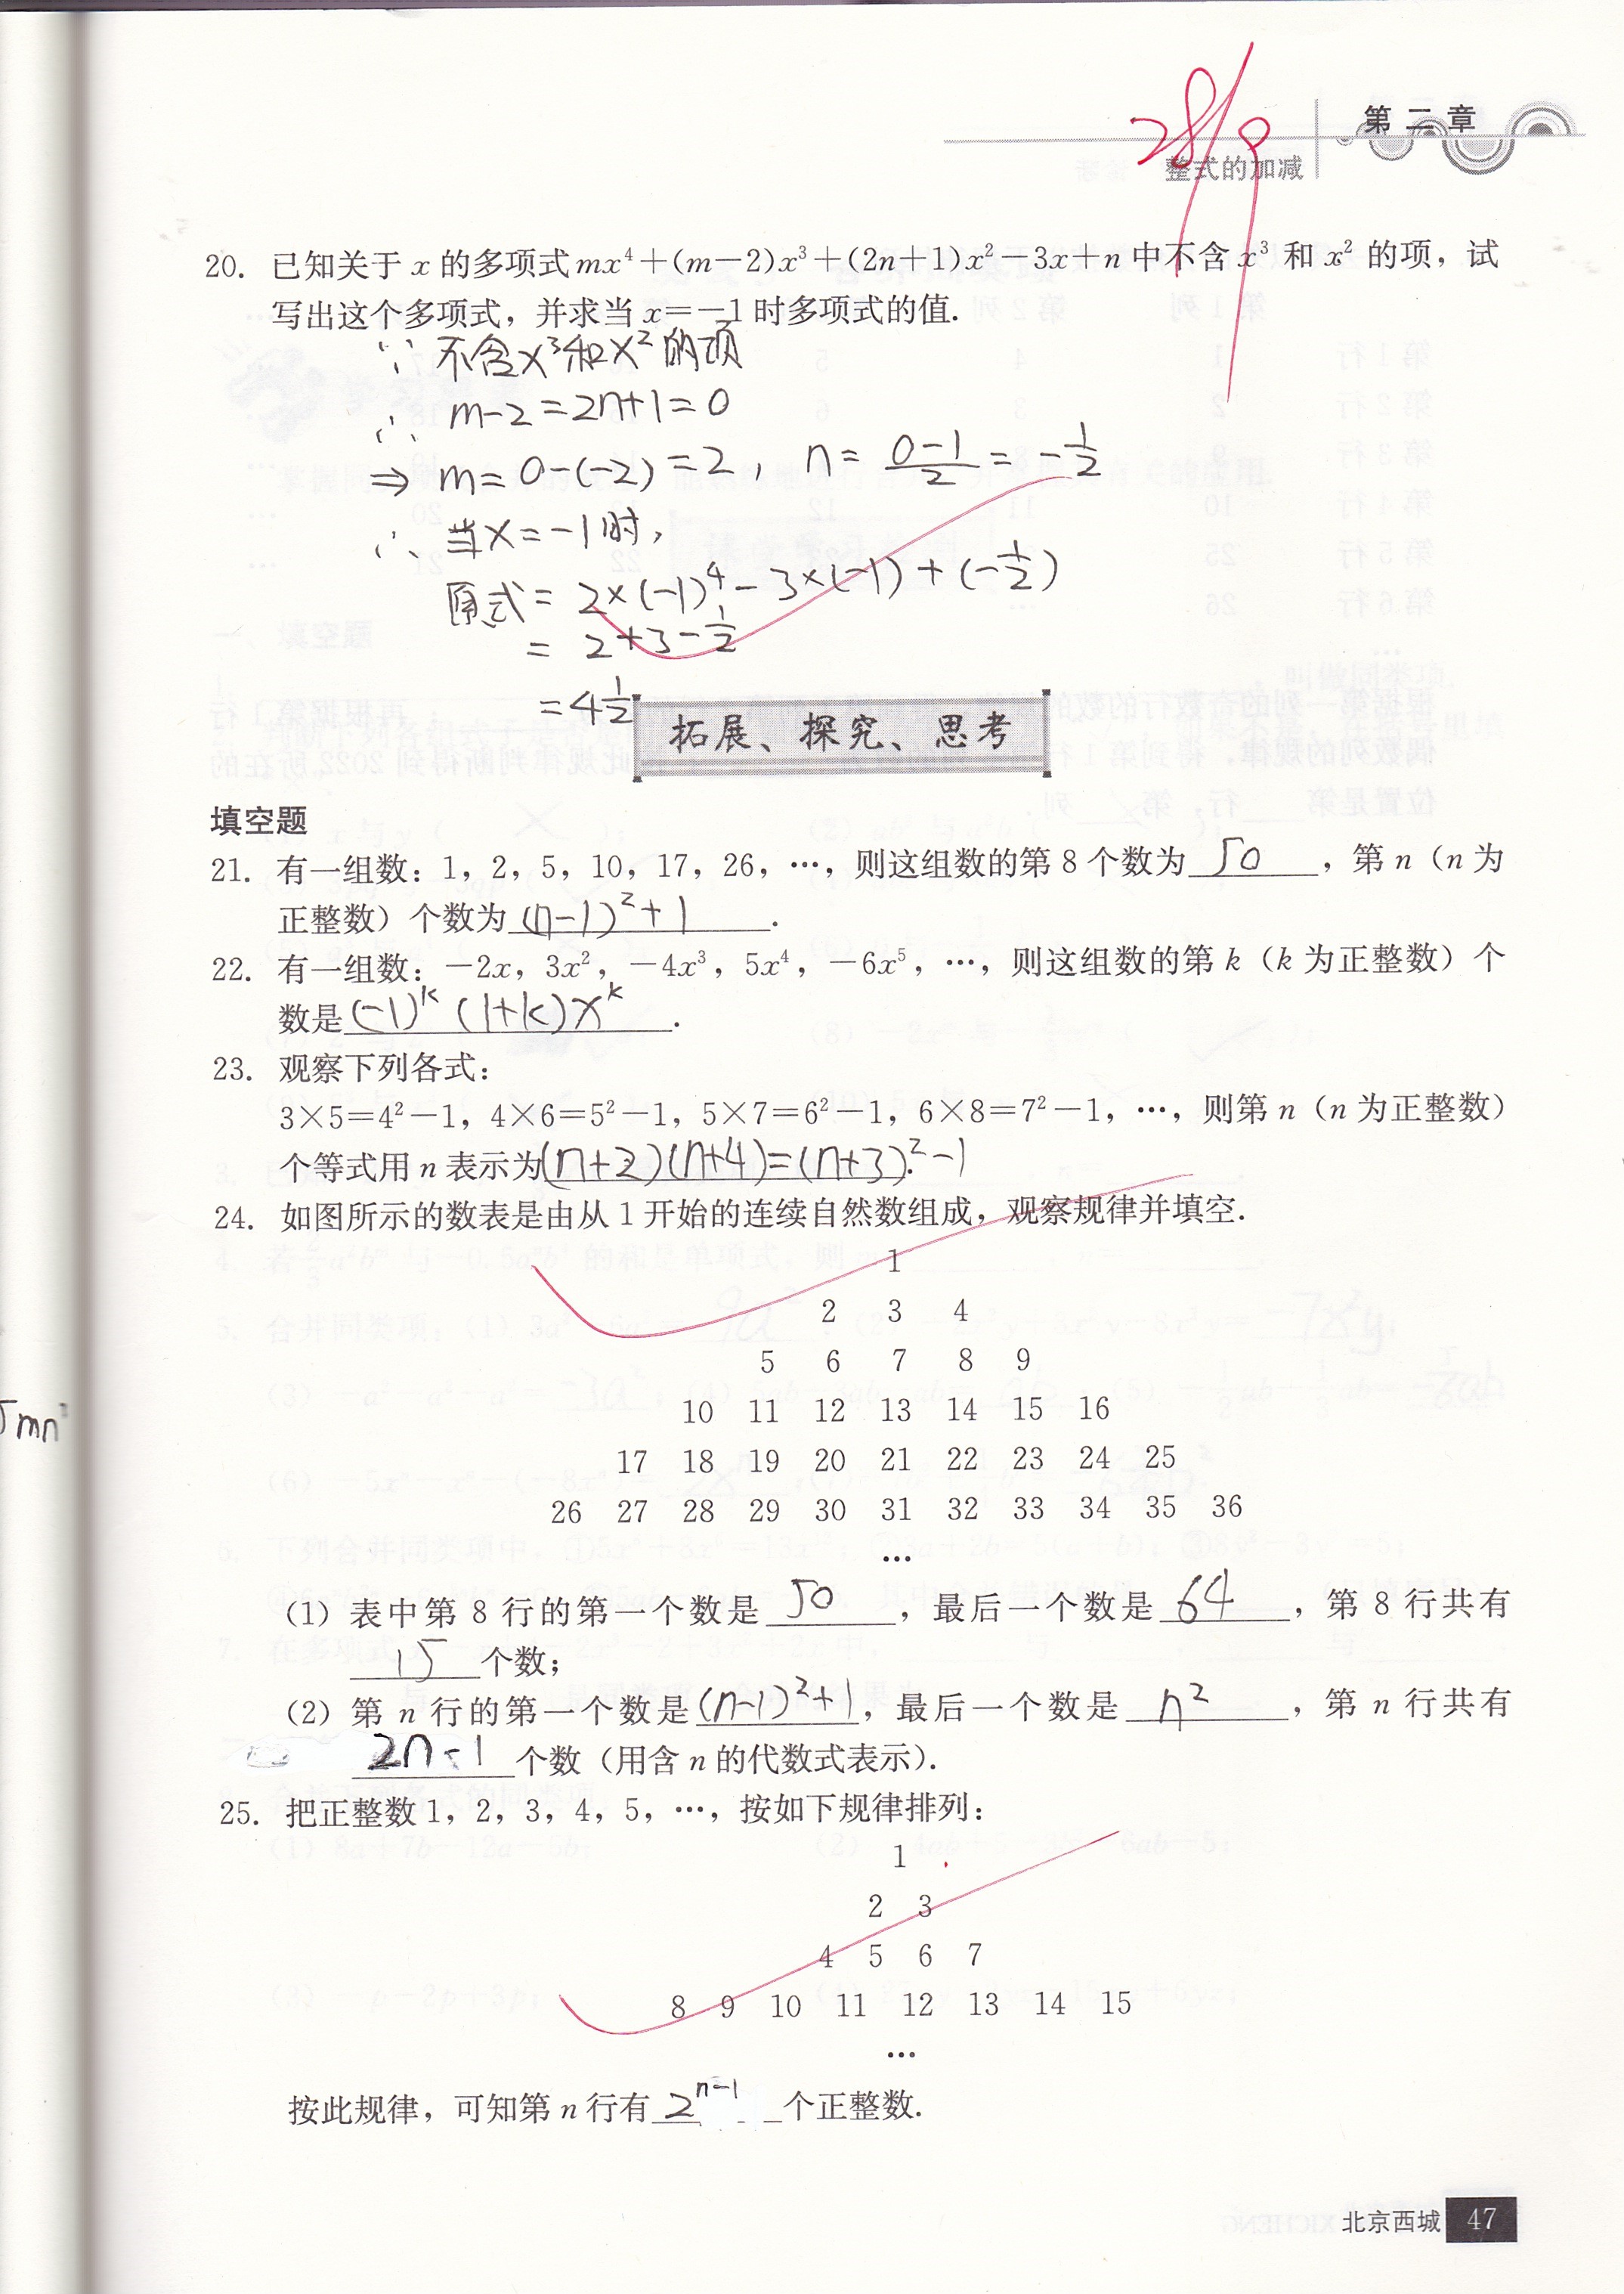 28/9
第二章
整式的加减
20. 已知关于 x 的多项式 mx⁴+(m-2)x³+(2n+1)x²-3x+n 中不含 x³ 和 x² 的项，试
写出这个多项式，并求当 x=-1 时多项式的值.
∵ 不含x³和x²的项
∴ m-2=2n+1=0
⇒ m=0-(-2)=2, n=(0-1)/2=-1/2
∴ 当x=-1时,
原式= 2×(-1)⁴-3×(-1)+(-1/2)
= 2+3-1/2
=4 1/2
拓展、探究、思考
填空题
21. 有一组数：1，2，5，10，17，26，…，则这组数的第 8 个数为 50 ，第 n（n 为
正整数）个数为 (n-1)²+1 .
22. 有一组数：-2x，3x²，-4x³，5x⁴，-6x⁵，…，则这组数的第 k（k 为正整数）个
数是 (-1)ᵏ(1+k)xᵏ .
23. 观察下列各式：
3×5=4²-1，4×6=5²-1，5×7=6²-1，6×8=7²-1，…，则第 n（n 为正整数）
个等式用 n 表示为 (n+2)(n+4)=(n+3)²-1 .
24. 如图所示的数表是由从 1 开始的连续自然数组成，观察规律并填空.
1
2 3 4
5 6 7 8 9
10 11 12 13 14 15 16
17 18 19 20 21 22 23 24 25
26 27 28 29 30 31 32 33 34 35 36
…
5mn²
（1）表中第 8 行的第一个数是 50 ，最后一个数是 64 ，第 8 行共有
15 个数；
（2）第 n 行的第一个数是 (n-1)²+1 ，最后一个数是 n² ，第 n 行共有
2n-1 个数（用含 n 的代数式表示）.
25. 把正整数 1，2，3，4，5，…，按如下规律排列：
1
2 3
4 5 6 7
8 9 10 11 12 13 14 15
…
按此规律，可知第 n 行有 2ⁿ⁻¹ 个正整数.
北京西城 47